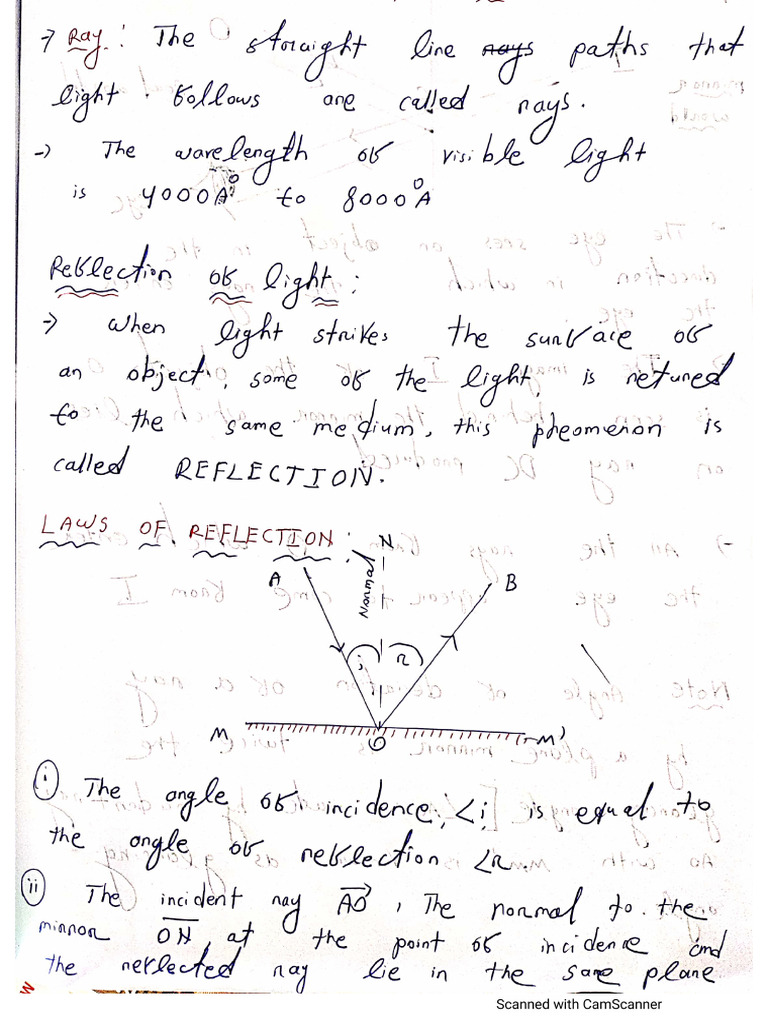 → Ray : The straight line rays paths that
light follows are called rays.
→ The wavelength of visible light
is 4000A° to 8000°A
Reflection of light :
→ When light strikes the surface of
an object, some of the light, is retuned
to the same medium, this pheomenon is
called REFLECTION.
LAWS OF REFLECTION :
N
Normal
A
B
i
r
M
O
M'
(i) The angle of incidence, ∠i, is equal to
the angle of reflection ∠r.
(ii) The incident ray AO, The normal to the
mirror ON, at the point of incidence and
the reflected ray lie in the same plane
Scanned with CamScanner